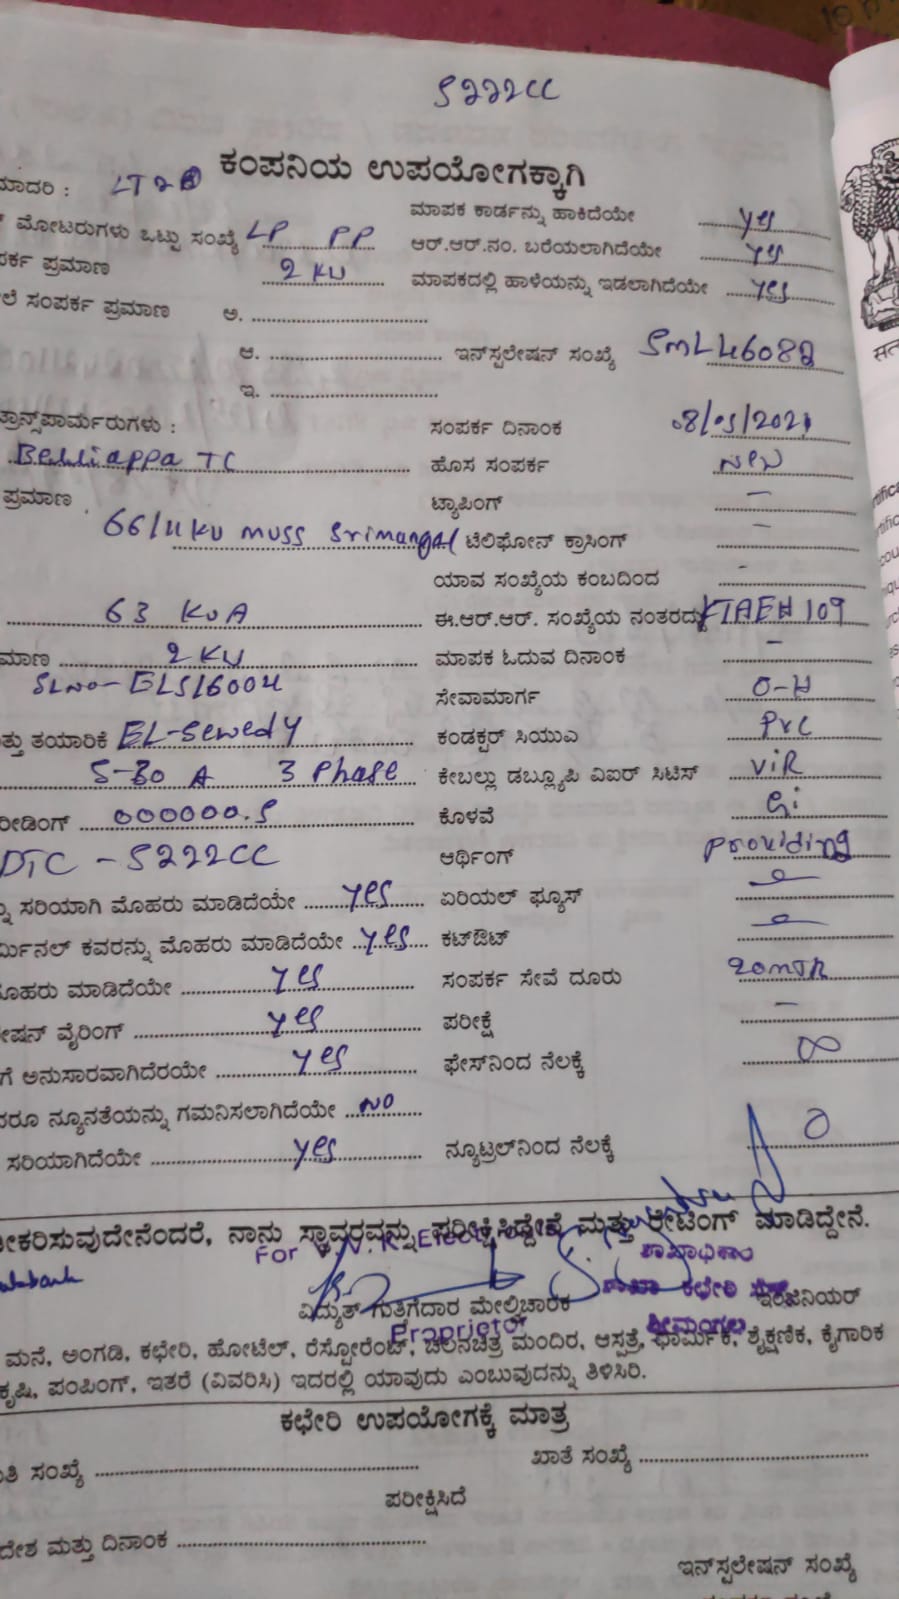 S222CC
ಕಂಪನಿಯ ಉಪಯೋಗಕ್ಕಾಗಿ
ಮಾದರಿ : LT2 ಮಾಪಕ ಕಾರ್ಡನ್ನು ಹಾಕಿದೆಯೇ yes
ಮೋಟರುಗಳು ಒಟ್ಟು ಸಂಖ್ಯೆ LP PP ಆರ್.ಆರ್.ನಂ. ಬರೆಯಲಾಗಿದೆಯೇ yes
ಪರ್ಕ ಪ್ರಮಾಣ 2 KW ಮಾಪಕದಲ್ಲಿ ಹಾಳೆಯನ್ನು ಇಡಲಾಗಿದೆಯೇ yes
ಲೆ ಸಂಪರ್ಕ ಪ್ರಮಾಣ ಅ.
ಆ. ಇನ್‌ಸ್ಪಲೇಷನ್ ಸಂಖ್ಯೆ SML46082
ಇ.
ಟ್ರಾನ್ಸ್‌ಪಾರ್ಮರುಗಳು : ಸಂಪರ್ಕ ದಿನಾಂಕ 08/05/2021
Belliappa TC ಹೊಸ ಸಂಪರ್ಕ New
ಪ್ರಮಾಣ ಟ್ಯಾಪಿಂಗ್ -
66/11KV MUSS Srimangal ಟೆಲಿಫೋನ್ ಕ್ರಾಸಿಂಗ್ -
ಯಾವ ಸಂಖ್ಯೆಯ ಕಂಬದಿಂದ -
63 KVA ಈ.ಆರ್.ಆರ್. ಸಂಖ್ಯೆಯ ನಂತರದ್ದು KTAEH 109
ಮಾಣ 2 KW ಮಾಪಕ ಓದುವ ದಿನಾಂಕ -
SLNO-ELS16004 ಸೇವಾಮಾರ್ಗ O-H
ತ್ತು ತಯಾರಿಕೆ EL-Sewedy ಕಂಡಕ್ಟರ್ ಸಿಯುಎ PVC
5-30 A 3 Phase ಕೇಬಲ್ಲು ಡಬ್ಲ್ಯೂಪಿ ವಿಐರ್ ಸಿಟಿಸ್ VIR
ರೀಡಿಂಗ್ 000000.5 ಕೊಳವೆ Gi
DTC - S222CC ಆರ್ಥಿಂಗ್ providing
ನ್ನು ಸರಿಯಾಗಿ ಮೊಹರು ಮಾಡಿದೆಯೇ yes ಏರಿಯಲ್ ಫ್ಯೂಸ್
ರ್ಮಿನಲ್ ಕವರನ್ನು ಮೊಹರು ಮಾಡಿದೆಯೇ yes ಕಟ್‌ಔಟ್
ಮೊಹರು ಮಾಡಿದೆಯೇ yes ಸಂಪರ್ಕ ಸೇವೆ ದೂರು 20mtr
ಷನ್ ವೈರಿಂಗ್ yes ಪರೀಕ್ಷೆ -
ಗೆ ಅನುಸಾರವಾಗಿದೆರಯೇ yes ಫೇಸ್‌ನಿಂದ ನೆಲಕ್ಕೆ ∞
ದರೂ ನ್ಯೂನತೆಯನ್ನು ಗಮನಿಸಲಾಗಿದೆಯೇ NO
ಸರಿಯಾಗಿದೆಯೇ yes ನ್ಯೂಟ್ರಲ್‌ನಿಂದ ನೆಲಕ್ಕೆ 0
ೀಕರಿಸುವುದೇನೆಂದರೆ, ನಾನು ಸ್ಥಾವರವನ್ನು ಪರೀಕ್ಷಿಸಿದ್ದೇನೆ ಮತ್ತು ರೇಟಿಂಗ್ ಮಾಡಿದ್ದೇನೆ.
For
ಶಾಖಾಧಿಕಾರಿ
ಶಾಖಾ ಕಛೇರಿ
ವಿದ್ಯುತ್ ಗುತ್ತಿಗೆದಾರ ಮೇಲ್ವಿಚಾರಕ ಇಂಜಿನಿಯರ್
Proprietor ಶ್ರೀಮಂಗಲ
ಮನೆ, ಅಂಗಡಿ, ಕಛೇರಿ, ಹೋಟೆಲ್, ರೆಸ್ಟೋರೆಂಟ್, ಚಲನಚಿತ್ರ ಮಂದಿರ, ಆಸ್ಪತ್ರೆ, ಫಾರ್ಮಿಕೆ, ಶೈಕ್ಷಣಿಕ, ಕೈಗಾರಿಕ
ಕೃಷಿ, ಪಂಪಿಂಗ್, ಇತರೆ (ವಿವರಿಸಿ) ಇದರಲ್ಲಿ ಯಾವುದು ಎಂಬುವುದನ್ನು ತಿಳಿಸಿರಿ.
ಕಛೇರಿ ಉಪಯೋಗಕ್ಕೆ ಮಾತ್ರ
ತಿ ಸಂಖ್ಯೆ ಖಾತೆ ಸಂಖ್ಯೆ
ಪರೀಕ್ಷಿಸಿದೆ
ದೇಶ ಮತ್ತು ದಿನಾಂಕ
ಇನ್‌ಸ್ಪಲೇಷನ್ ಸಂಖ್ಯೆ